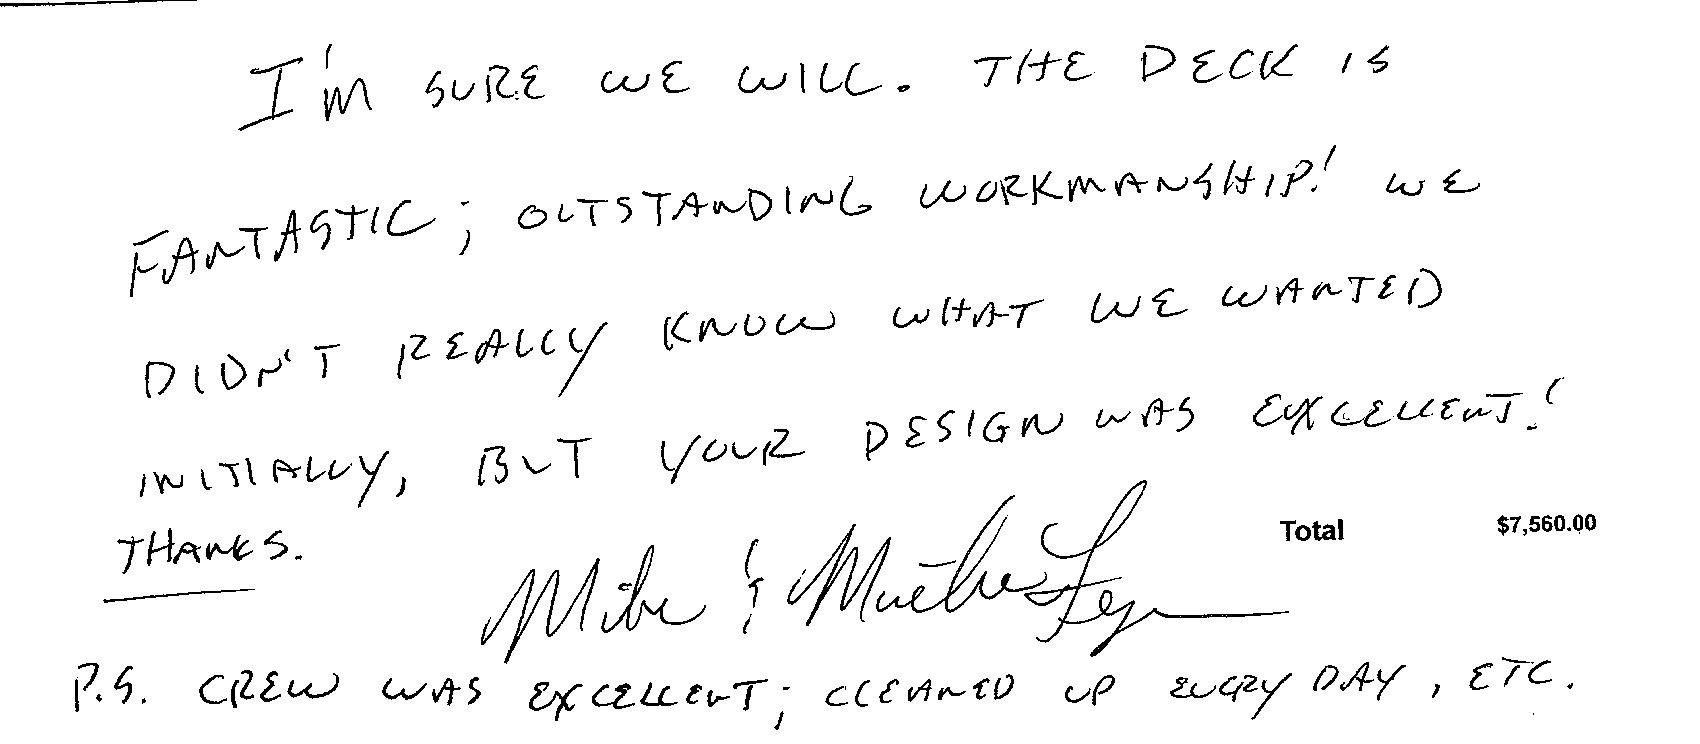 I'M SURE WE WILL. THE DECK IS
FANTASTIC; OUTSTANDING WORKMANSHIP! WE
DIDN'T REALLY KNOW WHAT WE WANTED
INITIALLY, BUT YOUR DESIGN WAS EXCELLENT!
THANKS.
Total $7,560.00
Mike &
P.S. CREW WAS EXCELLENT; CLEANED UP EVERY DAY, ETC.